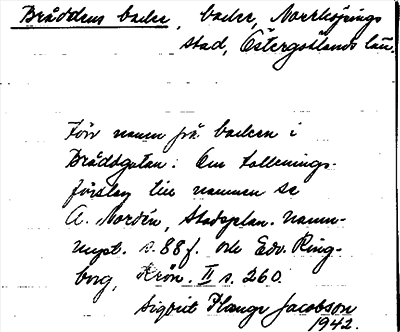 Bråddens backe, backe, Norrköpings
stad, Östergötlands län.
Förr namn på backen i
Bråddgatan. Om tolknings-
förslag till namnet se
A. Nordén, Stadsplan. namn-
mynt. s. 88 f. och Edv. Ring-
borg, Krön. II s. 260.
Sigbrit Plænge Jacobson
1942.